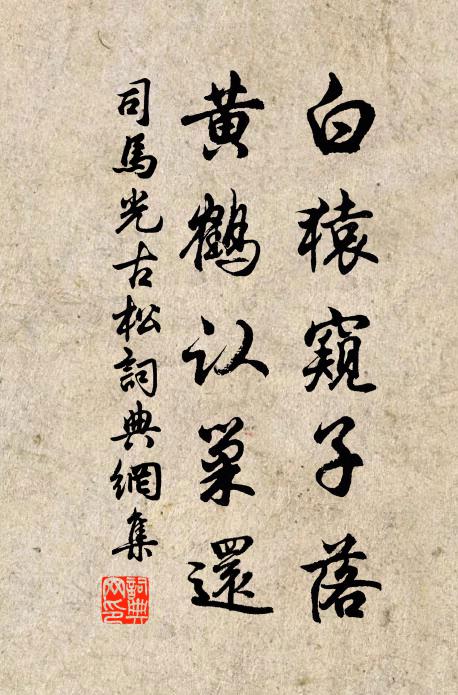 白猿窺子落
黃鶴認巢還
司馬光古松詞典網集
詞典網印